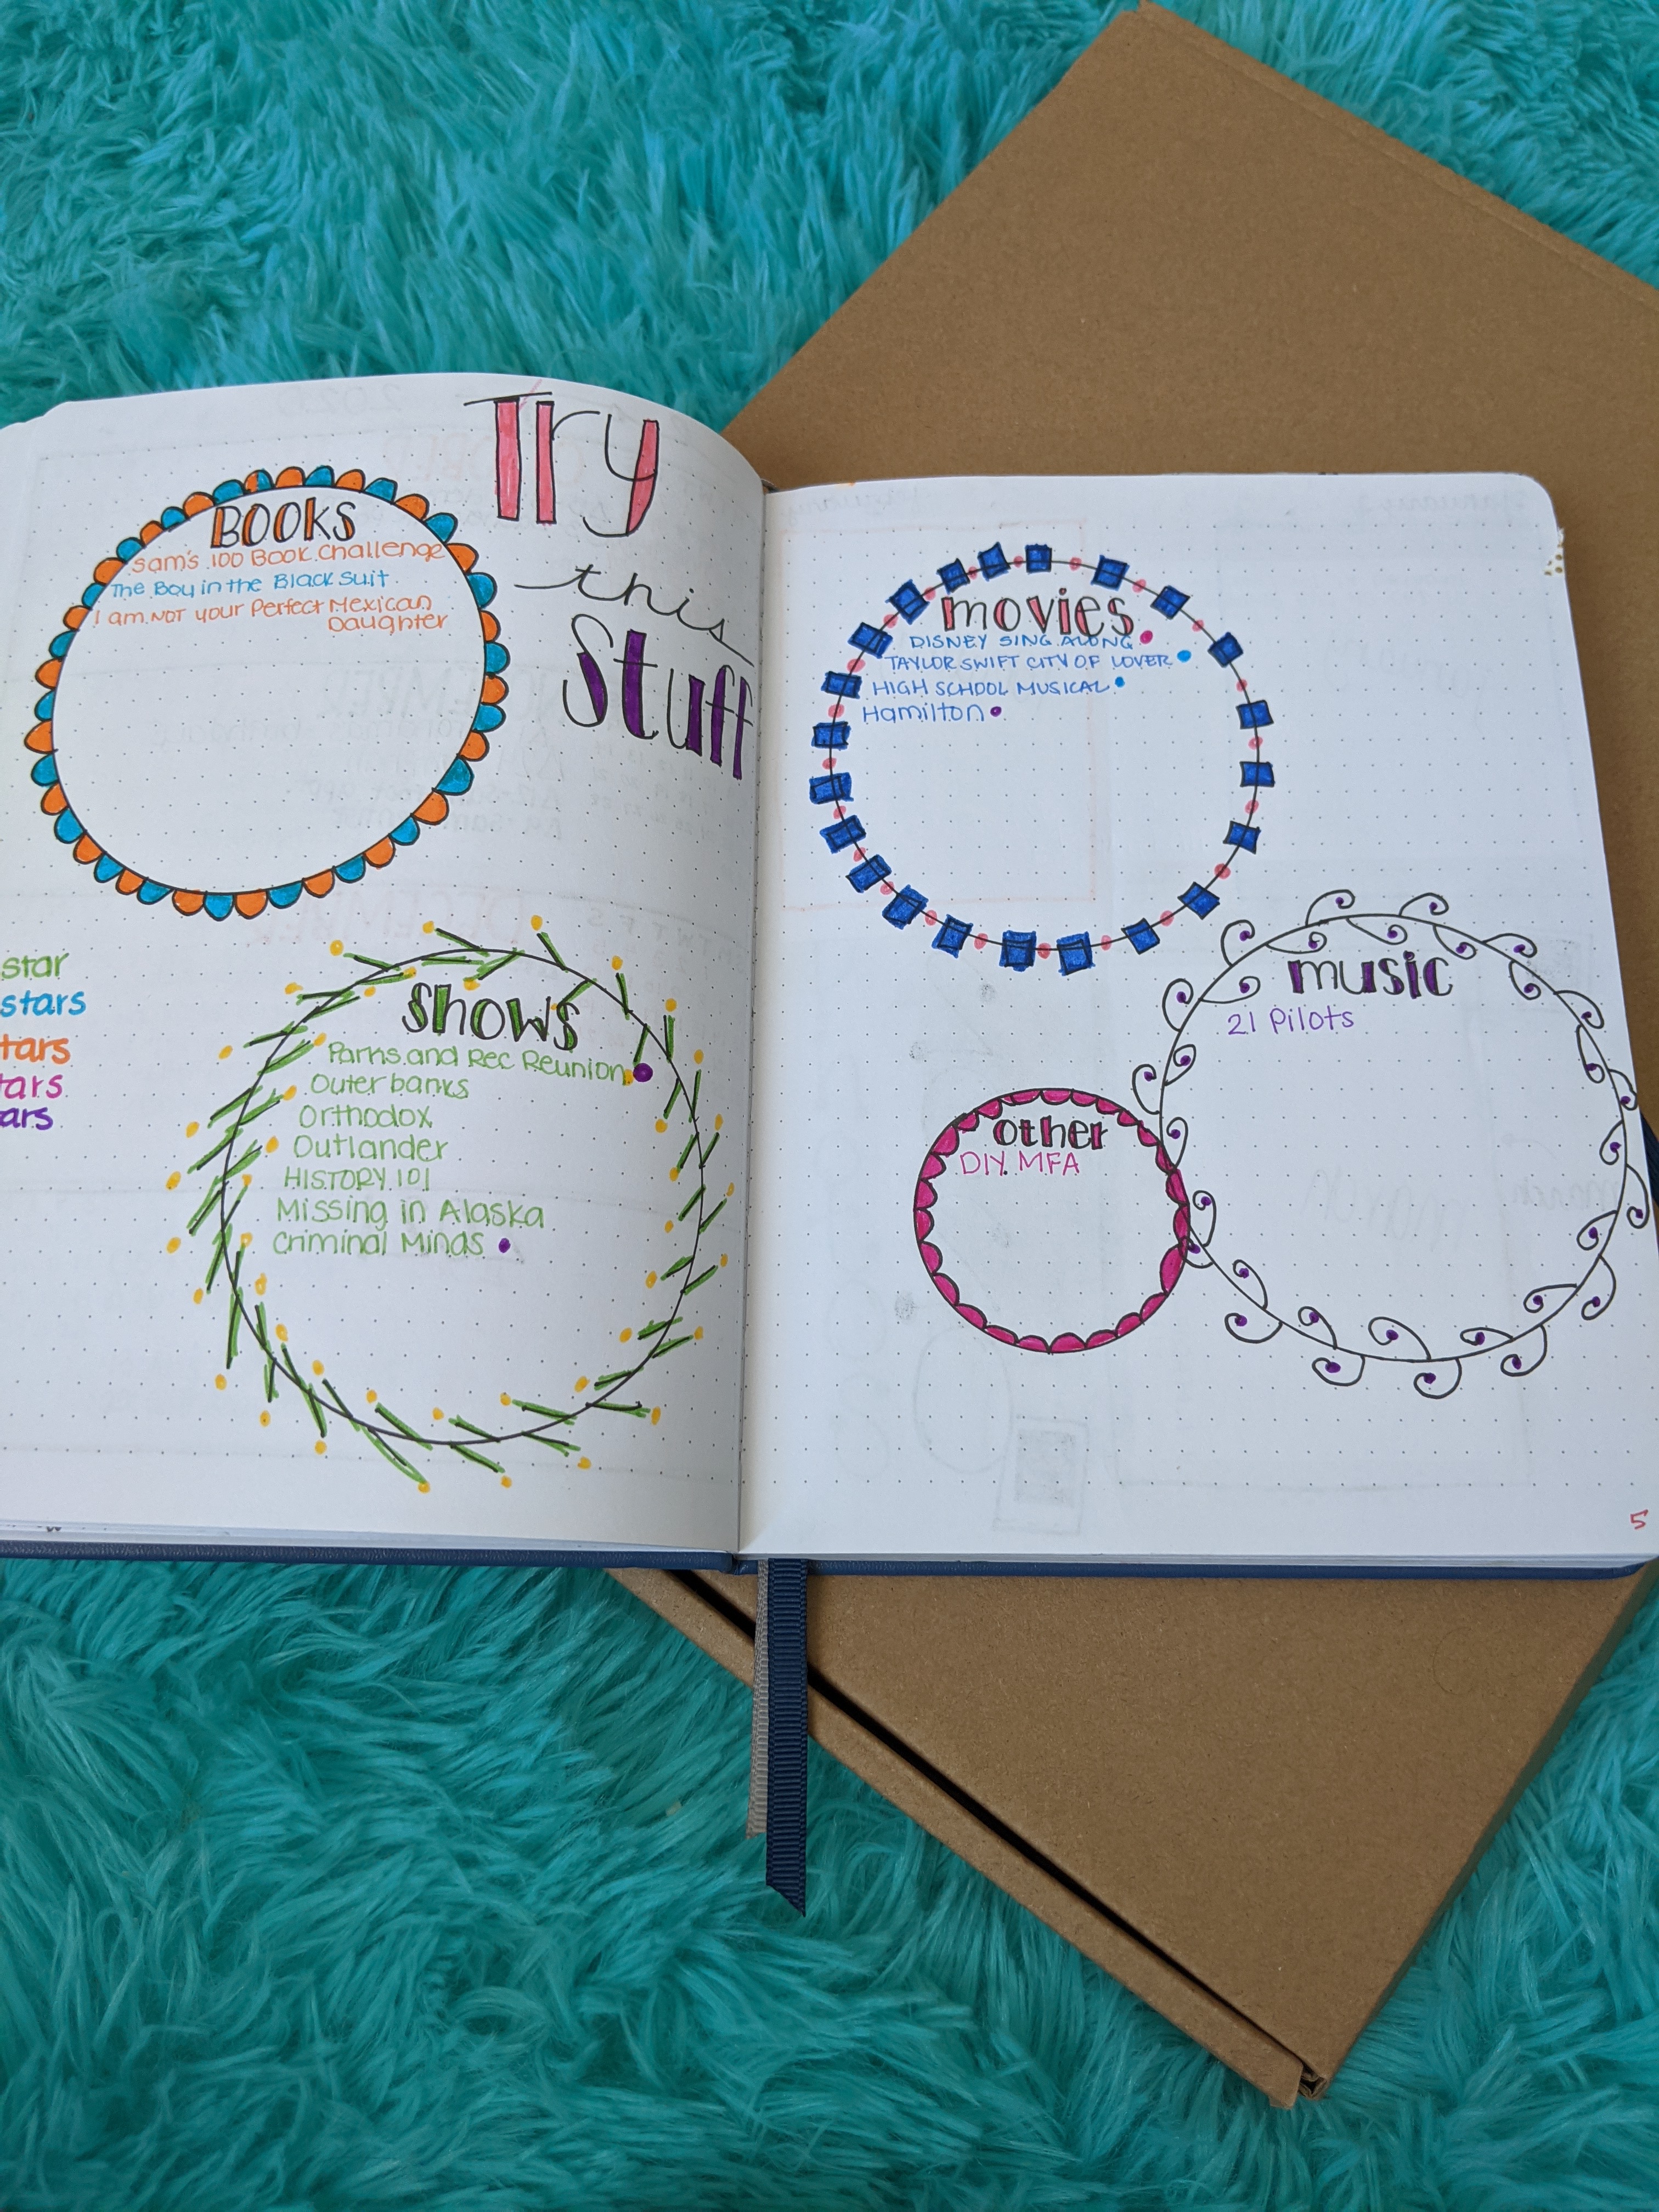 Try
this
Stuff
BOOKS
Sam's 100 Book Challenge
The Boy in the Black Suit
I am NOT your Perfect Mexican
Daughter
star
stars
tars
tars
ars
shows
Parks and Rec Reunion
Outer banks
Orthodox
Outlander
HISTORY 101
Missing in Alaska
Criminal Minds
movies
DISNEY SING ALONG
TAYLOR SWIFT CITY OF LOVER
HIGH SCHOOL MUSICAL
Hamilton
music
21 Pilots
other
DIY MFA
5